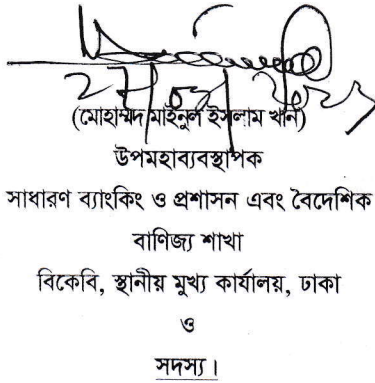 (মোহাম্মদ মাইনুল ইসলাম খান)
উপমহাব্যবস্থাপক
সাধারণ ব্যাংকিং ও প্রশাসন এবং বৈদেশিক
বাণিজ্য শাখা
বিকেবি, স্থানীয় মুখ্য কার্যালয়, ঢাকা
ও
সদস্য।